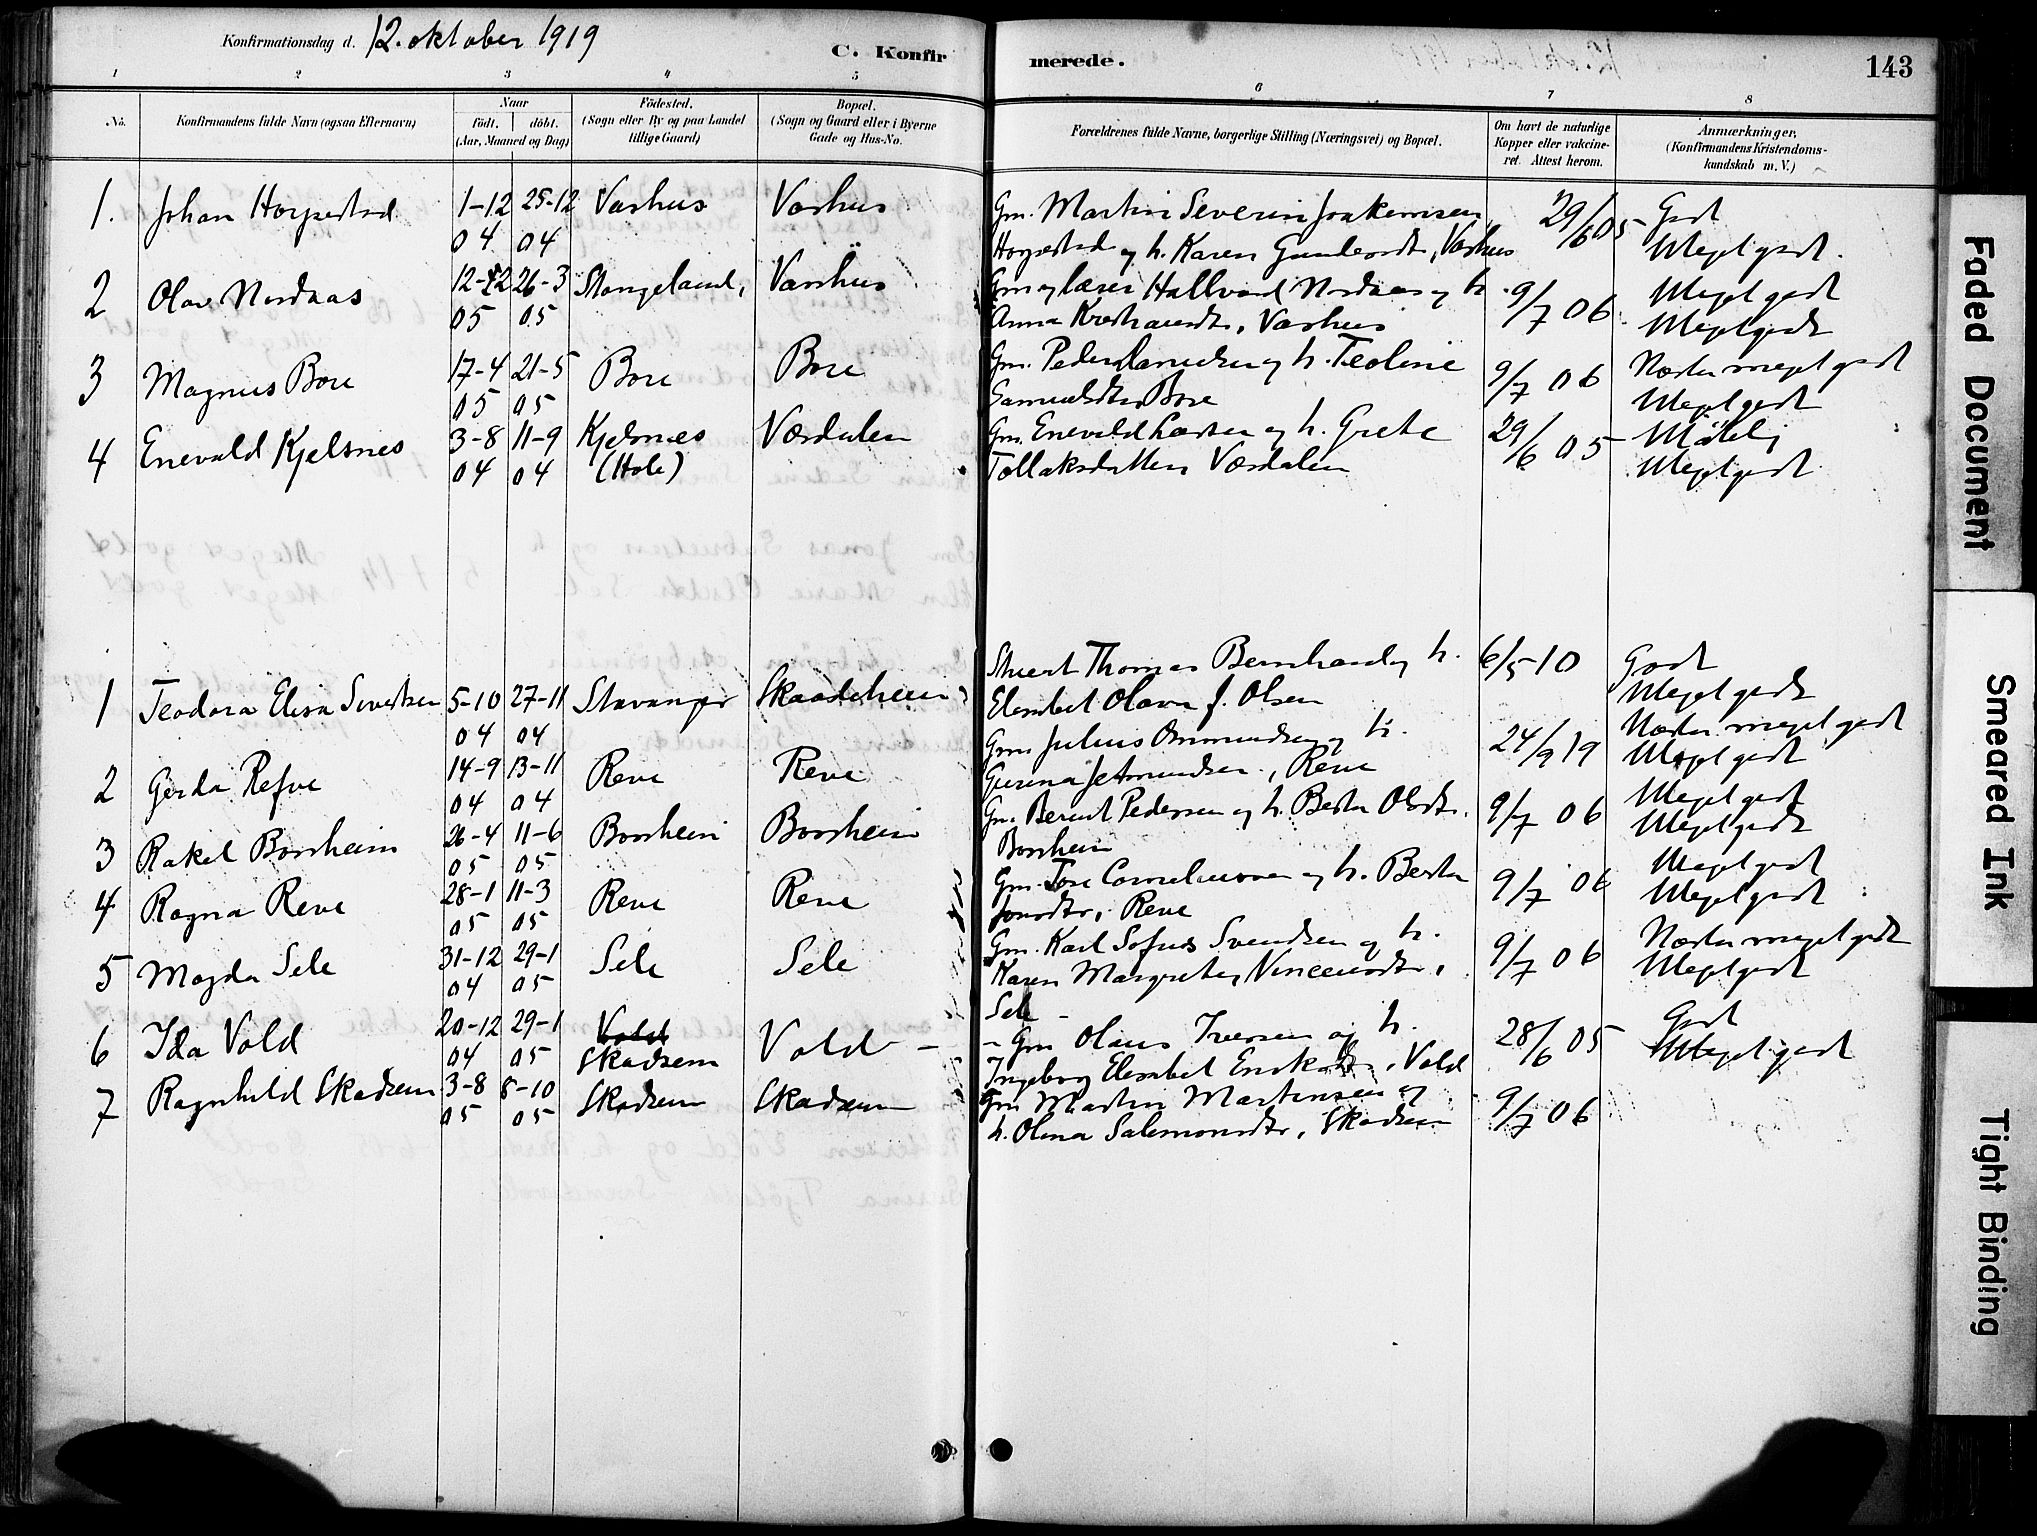 Konfirmationsdag d. 12. oktober 1919
C. Konfir
merede.
143
1 2 3 4 5 6 7 8
No.
Konfirmandens fulde Navn (ogsaa Efternavn)
Naar
födt. döbt.
(Aar, Maaned og Dag)
Födested.
(Sogn eller By og paa Landet
tillige Gaard)
Bopæl.
(Sogn og Gaard eller i Byerne
Gade og Hus-No.
Forældrenes fulde Navne, borgerlige Stilling (Næringsvei) og Bopæl.
Om havt de naturlige
Kopper eller vakcine-
ret. Attest herom.
Anmærkninger,
(Konfirmandens Kristendoms-
kundskab m. V.)
1. Johan Horpestad 1-12 25-12 Varhus Varhus Gm. Martin Severin Joakimsen 29/6 05 Godt
04 04 Horpestad og h. Karen Gundersdtr, Varhus Meget godt.
2 Olav Nordaas 12-2 26-3 Stangeland, Varhus Gm og læser Hallvard Nordaas og h. 9/7 06 Meget godt
05 05 Anna , Varhus Meget godt
3 Magnus Bore 17-4 21-5 Bore Bore Gm. Peder og h. Teoline 9/7 06 Næsten meget godt
05 05 Samuelsdtr Bore Meget godt
4 Enevald Kjelsnes 3-8 11-9 Kjelsnes Værdalen Gm. Enevald Larsen og h. Grete 29/6 05 Målelig
04 04 (Hole) Tollaksdatter Værdalen Meget godt
1 Teodora Elisa Sivertsen 5-10 27-11 Stavanger Skaadeheim Sivert Thomas Bernhard og h. 6/5 10 Godt
04 04 Elisabet Olava f. Olsen Meget godt
2 Gerda Refve 14-9 13-11 Reve Reve Gm Julius Ommundsen og h. 24/9 19 Næsten meget godt
04 04 Gurina , Reve Meget godt
3 Rakel Borsheim 26-4 11-6 Borsheim Borsheim Gm. Berent Pedersen og h. Berta Olsdtr. 9/7 06 Meget godt
05 05 Borsheim Meget godt
4 Ragna Reve 28-1 11-3 Reve Reve Gm. Tore Corneliussen og h. Berta 9/7 06 Meget godt
05 05 Jonsdtr, Reve Meget godt
5 Magda Sele 31-12 29-1 Sele Sele Gm. Karl Sofus Svendsen og h. 9/7 06 Næsten meget godt
04 05 Karen Margrete Vincentsdtr, Meget godt
Sele
6 Ida Vold 20-12 29-1 Vold Vold - Gm Olaus Iversen og h. 28/6 05 Godt
04 05 Skadsem Ingeborg Elisabet , Vold Meget godt
7 Ragnhild Skadsem 3-8 8-10 Skadsem Skadsem Gm Martin Martinsen og 9/7 06
05 05 h. Olena Salomonsdtr, Skadsem
Faded Document
Smeared Ink
Tight Binding